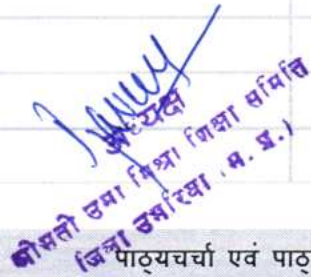 अध्यक्ष
श्रीमती उमा मिश्रा शिक्षा समिति
जिला उमरिया (म. प्र.)
पाठ्यचर्चा एवं पाठ्